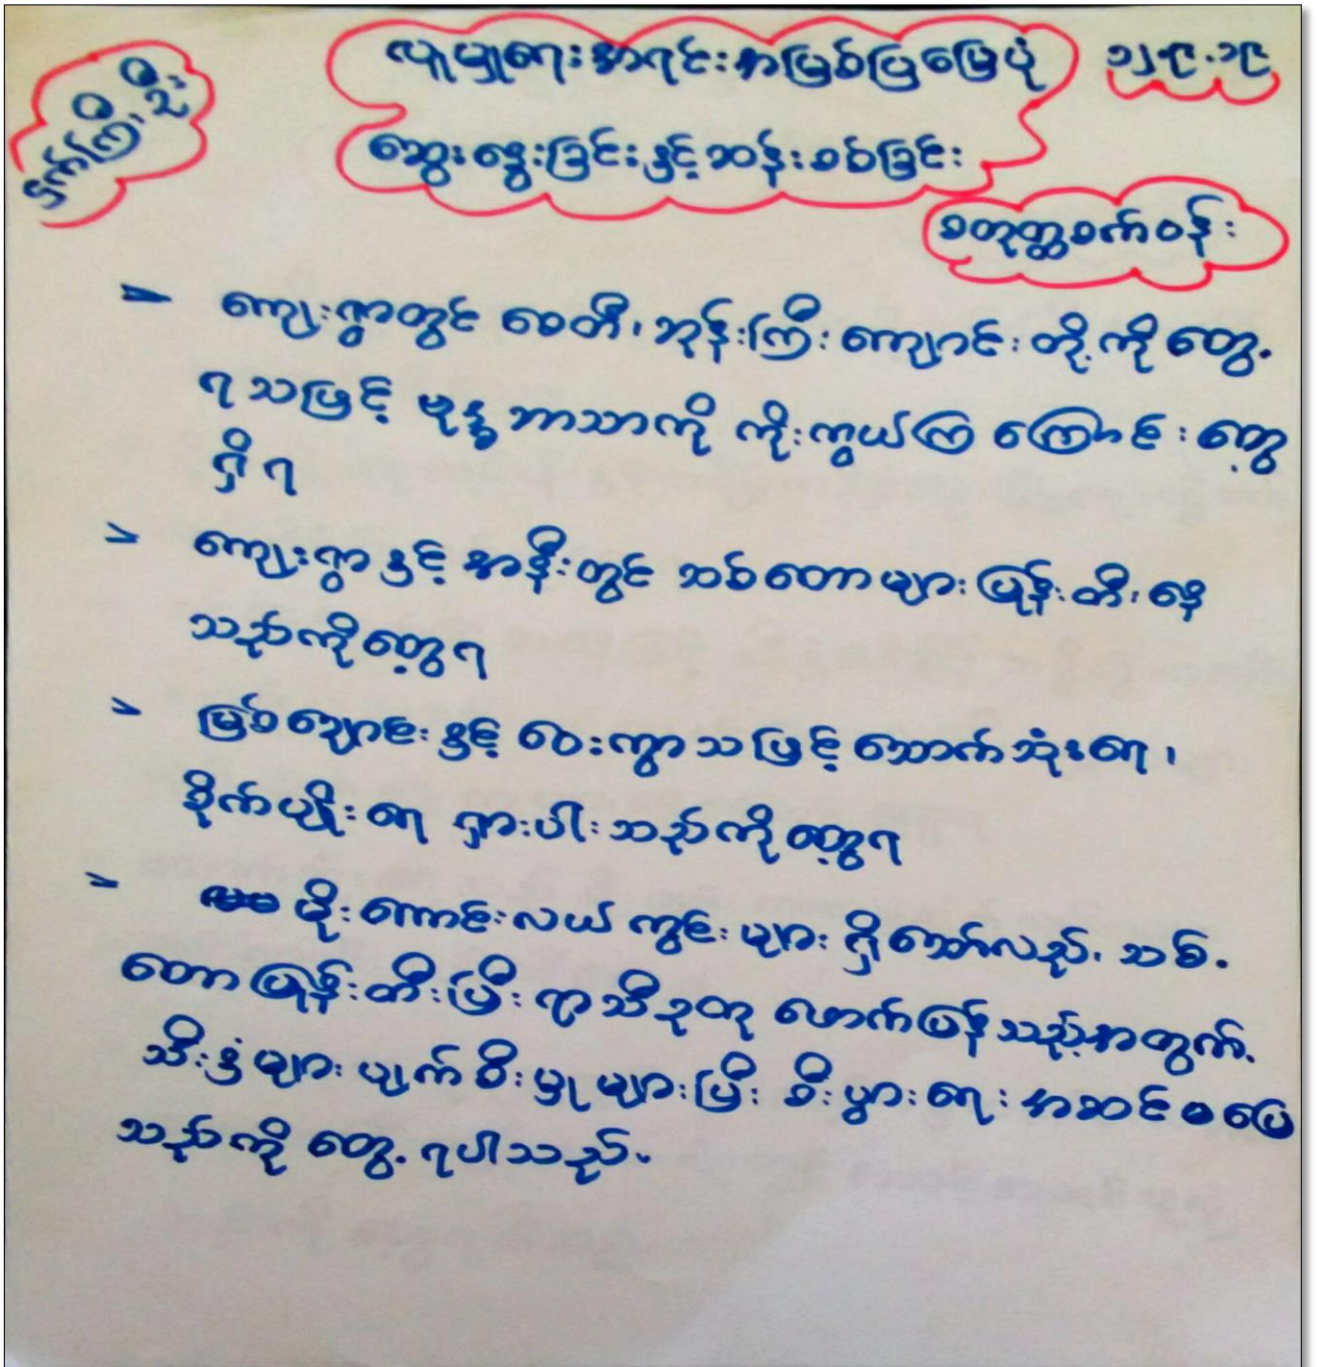 လူမှုရေးအရင်းအမြစ်ပြမြေပုံ ၁၂.၉.၁၉
ဆွေးနွေးခြင်းနှင့်ဆန်းစစ်ခြင်း
စတုတ္ထစက်ဝန်း
ကျေးရွာတွင် စေတီ၊ ဘုန်းကြီးကျောင်းတို့ကိုတွေ့
ရသဖြင့် ဗုဒ္ဓဘာသာကို ကိုးကွယ်ကြကြောင်းတွေ့
ရှိရ
ကျေးရွာနှင့်အနီးတွင် သစ်တောများပြုန်းတီးနေ
သည်ကိုတွေ့ရ
မြစ်ချောင်းနှင့် ဝေးကွာသဖြင့် သောက်သုံးရေ၊
စိုက်ပျိုးရေ ရှားပါးသည်ကိုတွေ့ရ
မိုးကောင်းလယ်ကွင်းများရှိသော်လည်း သစ်
တောပြုန်းတီးပြီးရာသီဥတု ဖောက်ပြန်သည့်အတွက်
သီးနှံများပျက်စီးမှုများပြီး စီးပွားရေးအဆင်မပြေ
သည်ကို တွေ့ရပါသည်။